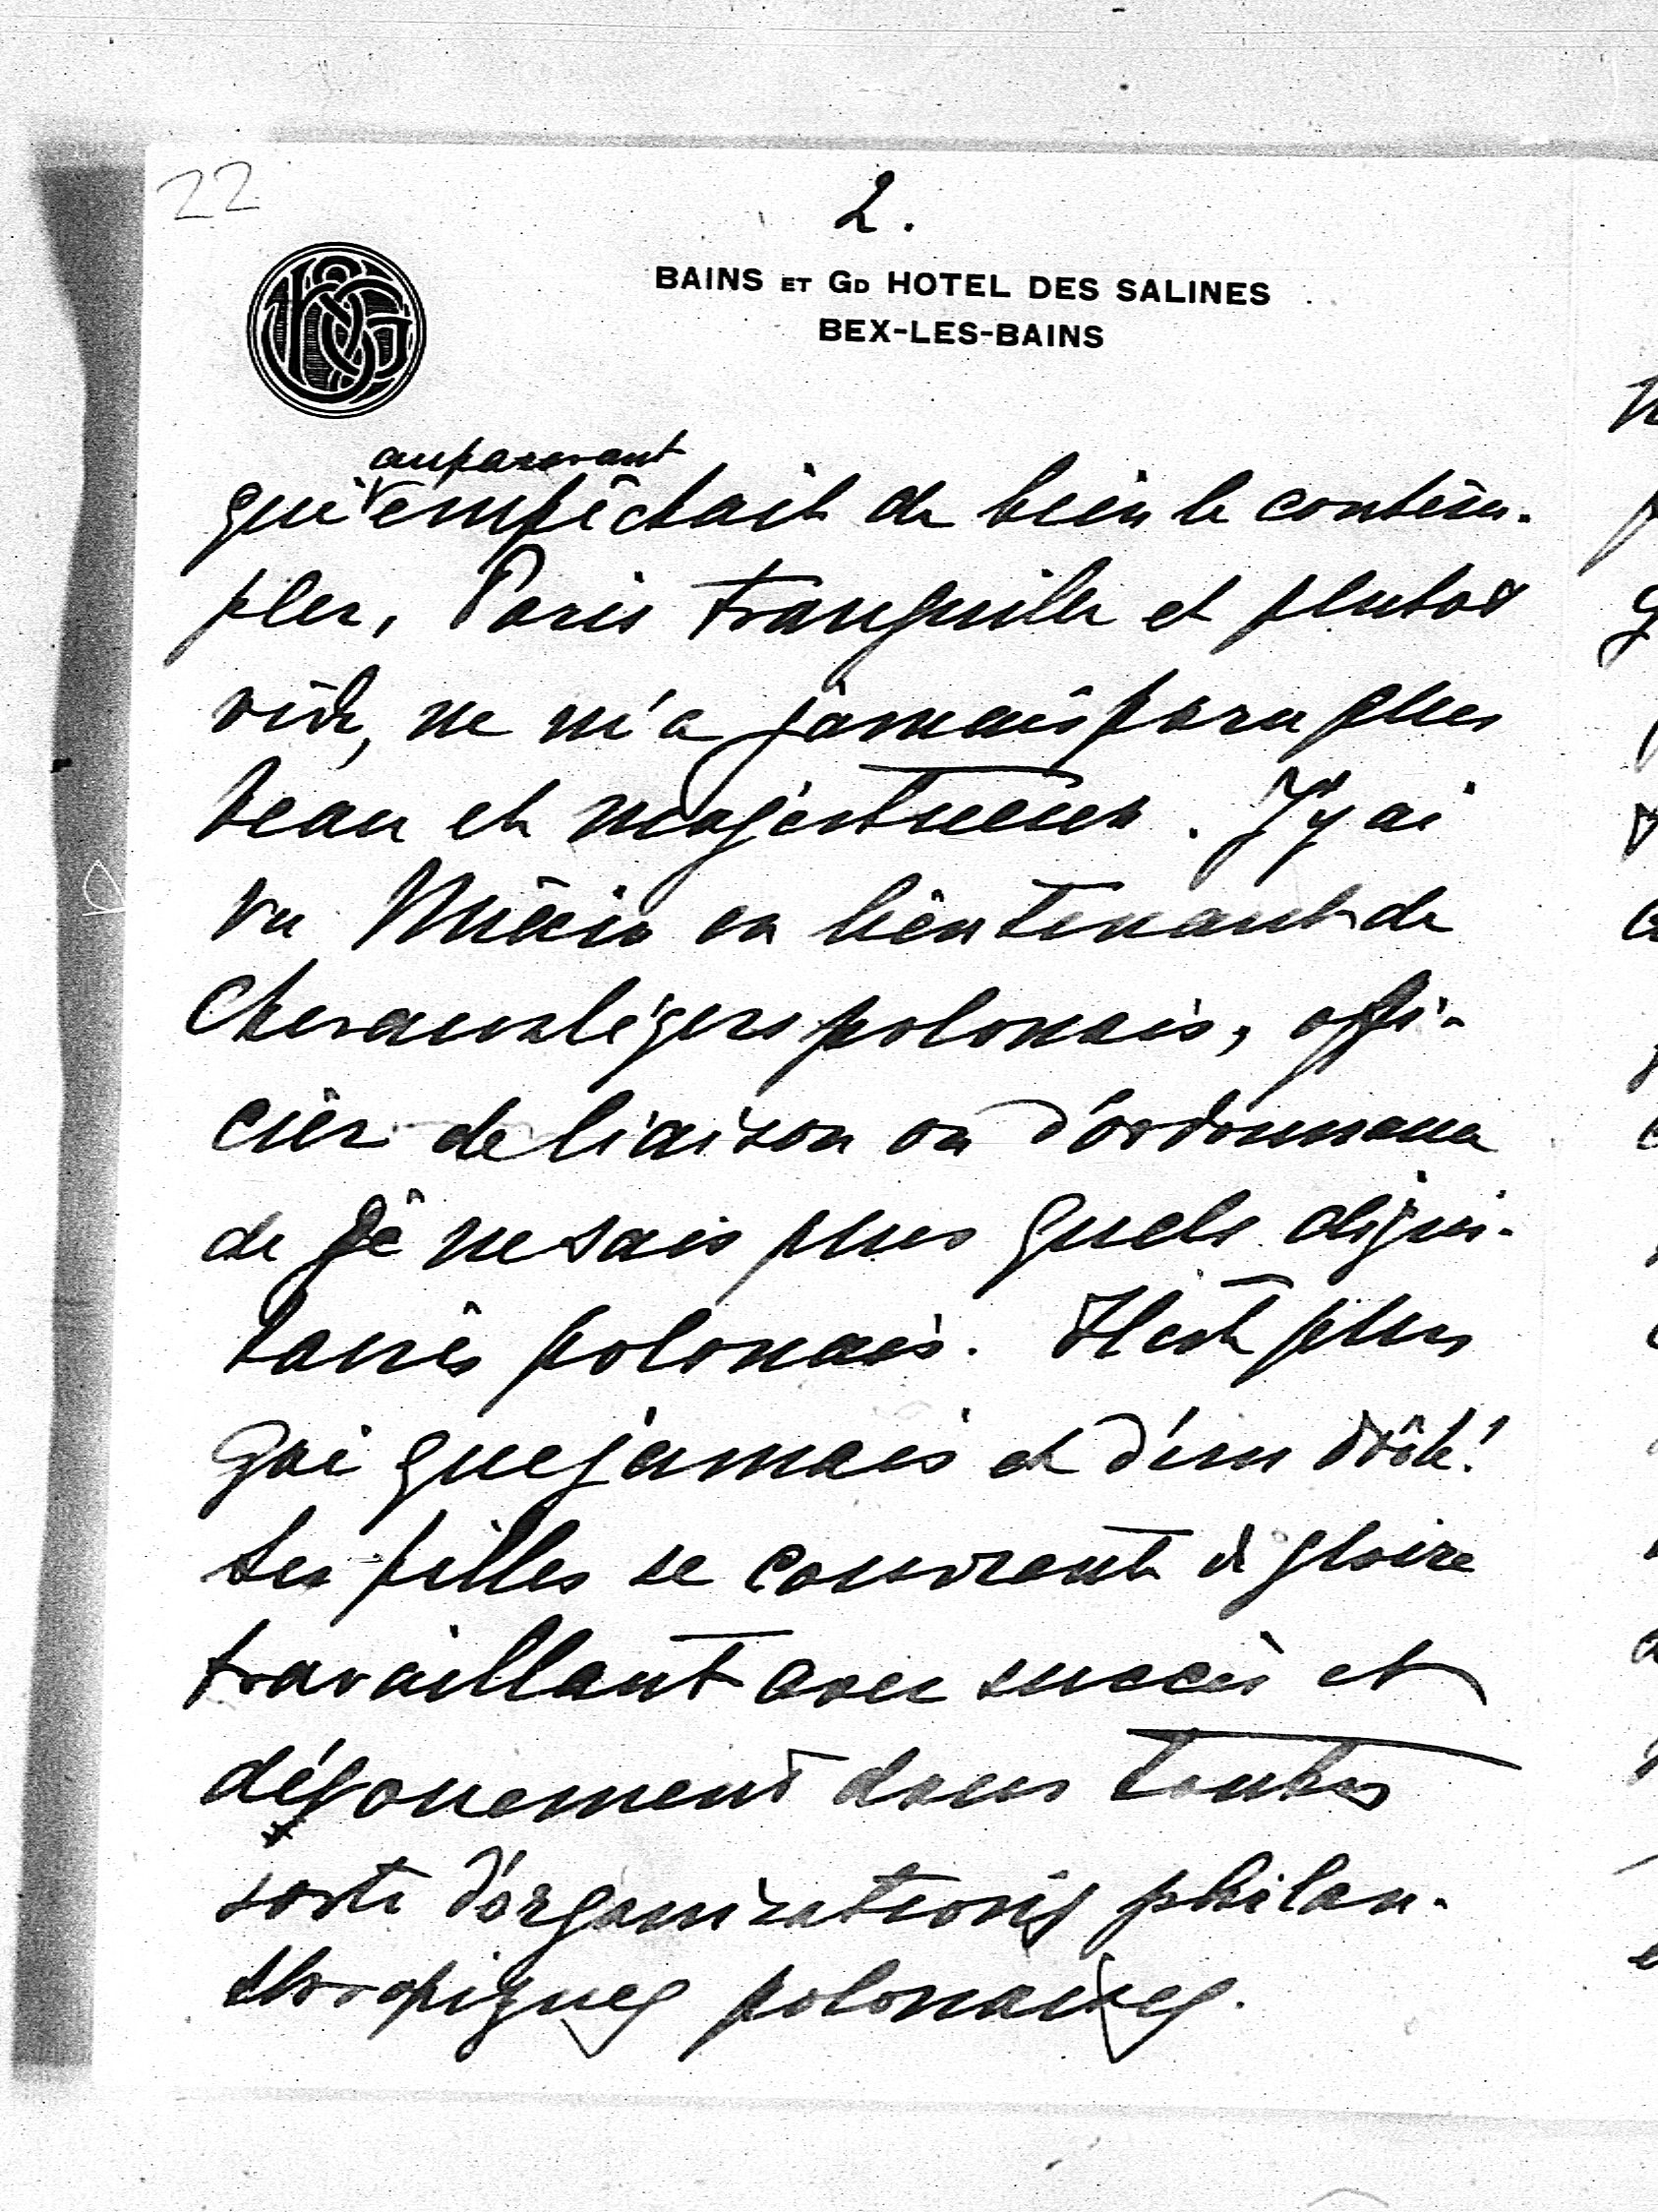 22
2.
BAINS ET GD HOTEL DES SALINES
BEX-LES-BAINS
auparavant
qui empêchait de bien le contem-
pler, Paris tranquille et plutot
vide, ne m'a jamais paru plus
beau et majestueux. J'y ai
vu en lieutenant de
Chevauxlégers polonais, offi-
cier de liaison ou d'ordonnance
de je ne sais plus quels digni-
taires polonais. Il est plus
gai que jamais et d'un drôle!
Ses filles se couvrent de gloire
travaillant avec succès et
dévouement dans toutes
sorte d'organisations philan-
thropiques polonaises.